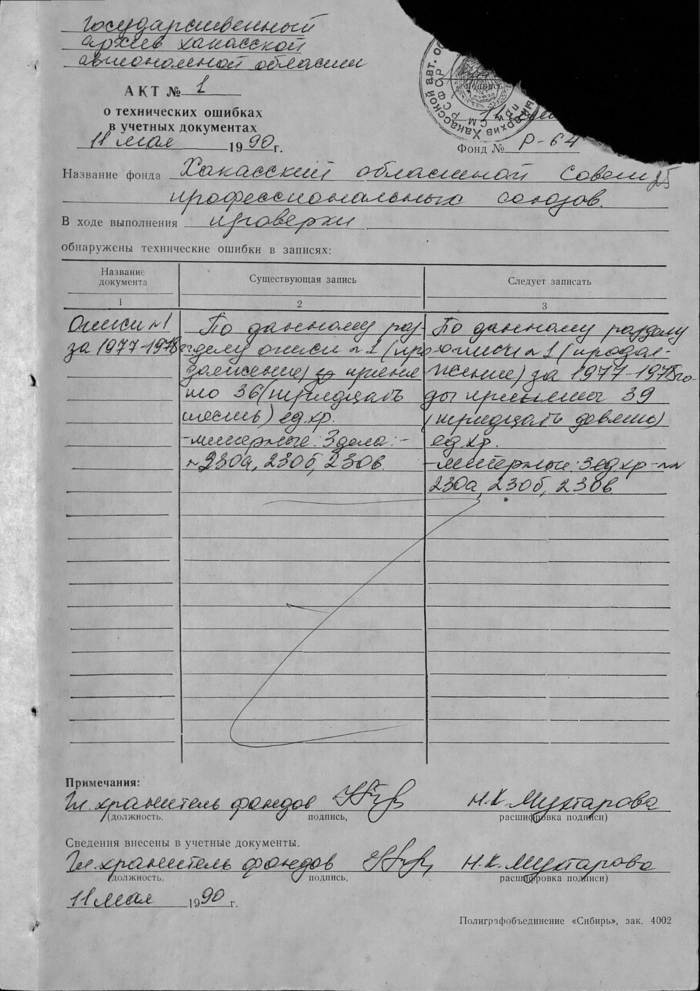 Государственный
архив Хакасской
автономной области
АКТ № 1
о технических ошибках
в учетных документах
11 мая 1990 г.
Фонд № Р-64
Название фонда Хакасский областной Совет
профессиональных союзов.
В ходе выполнения проверки
обнаружены технические ошибки в записях:
Название документа
Существующая запись
Следует записать
1
2
3
Описи №1
за 1977-1978
По данному раз-
делу описи №1 (про
должение) приня
то 36 (тридцать
шесть) ед.хр.
-литерные: 3 дела:-
№230а, 230б, 230в
По данному разделу
описи №1 (продол-
жение) за 1977-1978го-
ды приняты 39
(тридцать девять)
ед.хр.
-литерные: 3 ед.хр-№№
230а, 230б, 230в
Примечания:
Гл. хранитель фондов Н.К. Мухтарова
(должность, подпись, расшифровка подписи)
Сведения внесены в учетные документы.
Гл. хранитель фондов Н.К. Мухтарова
(должность, подпись, расшифровка подписи)
11 мая 1990 г.
Полиграфобъединение «Сибирь», зак. 4002